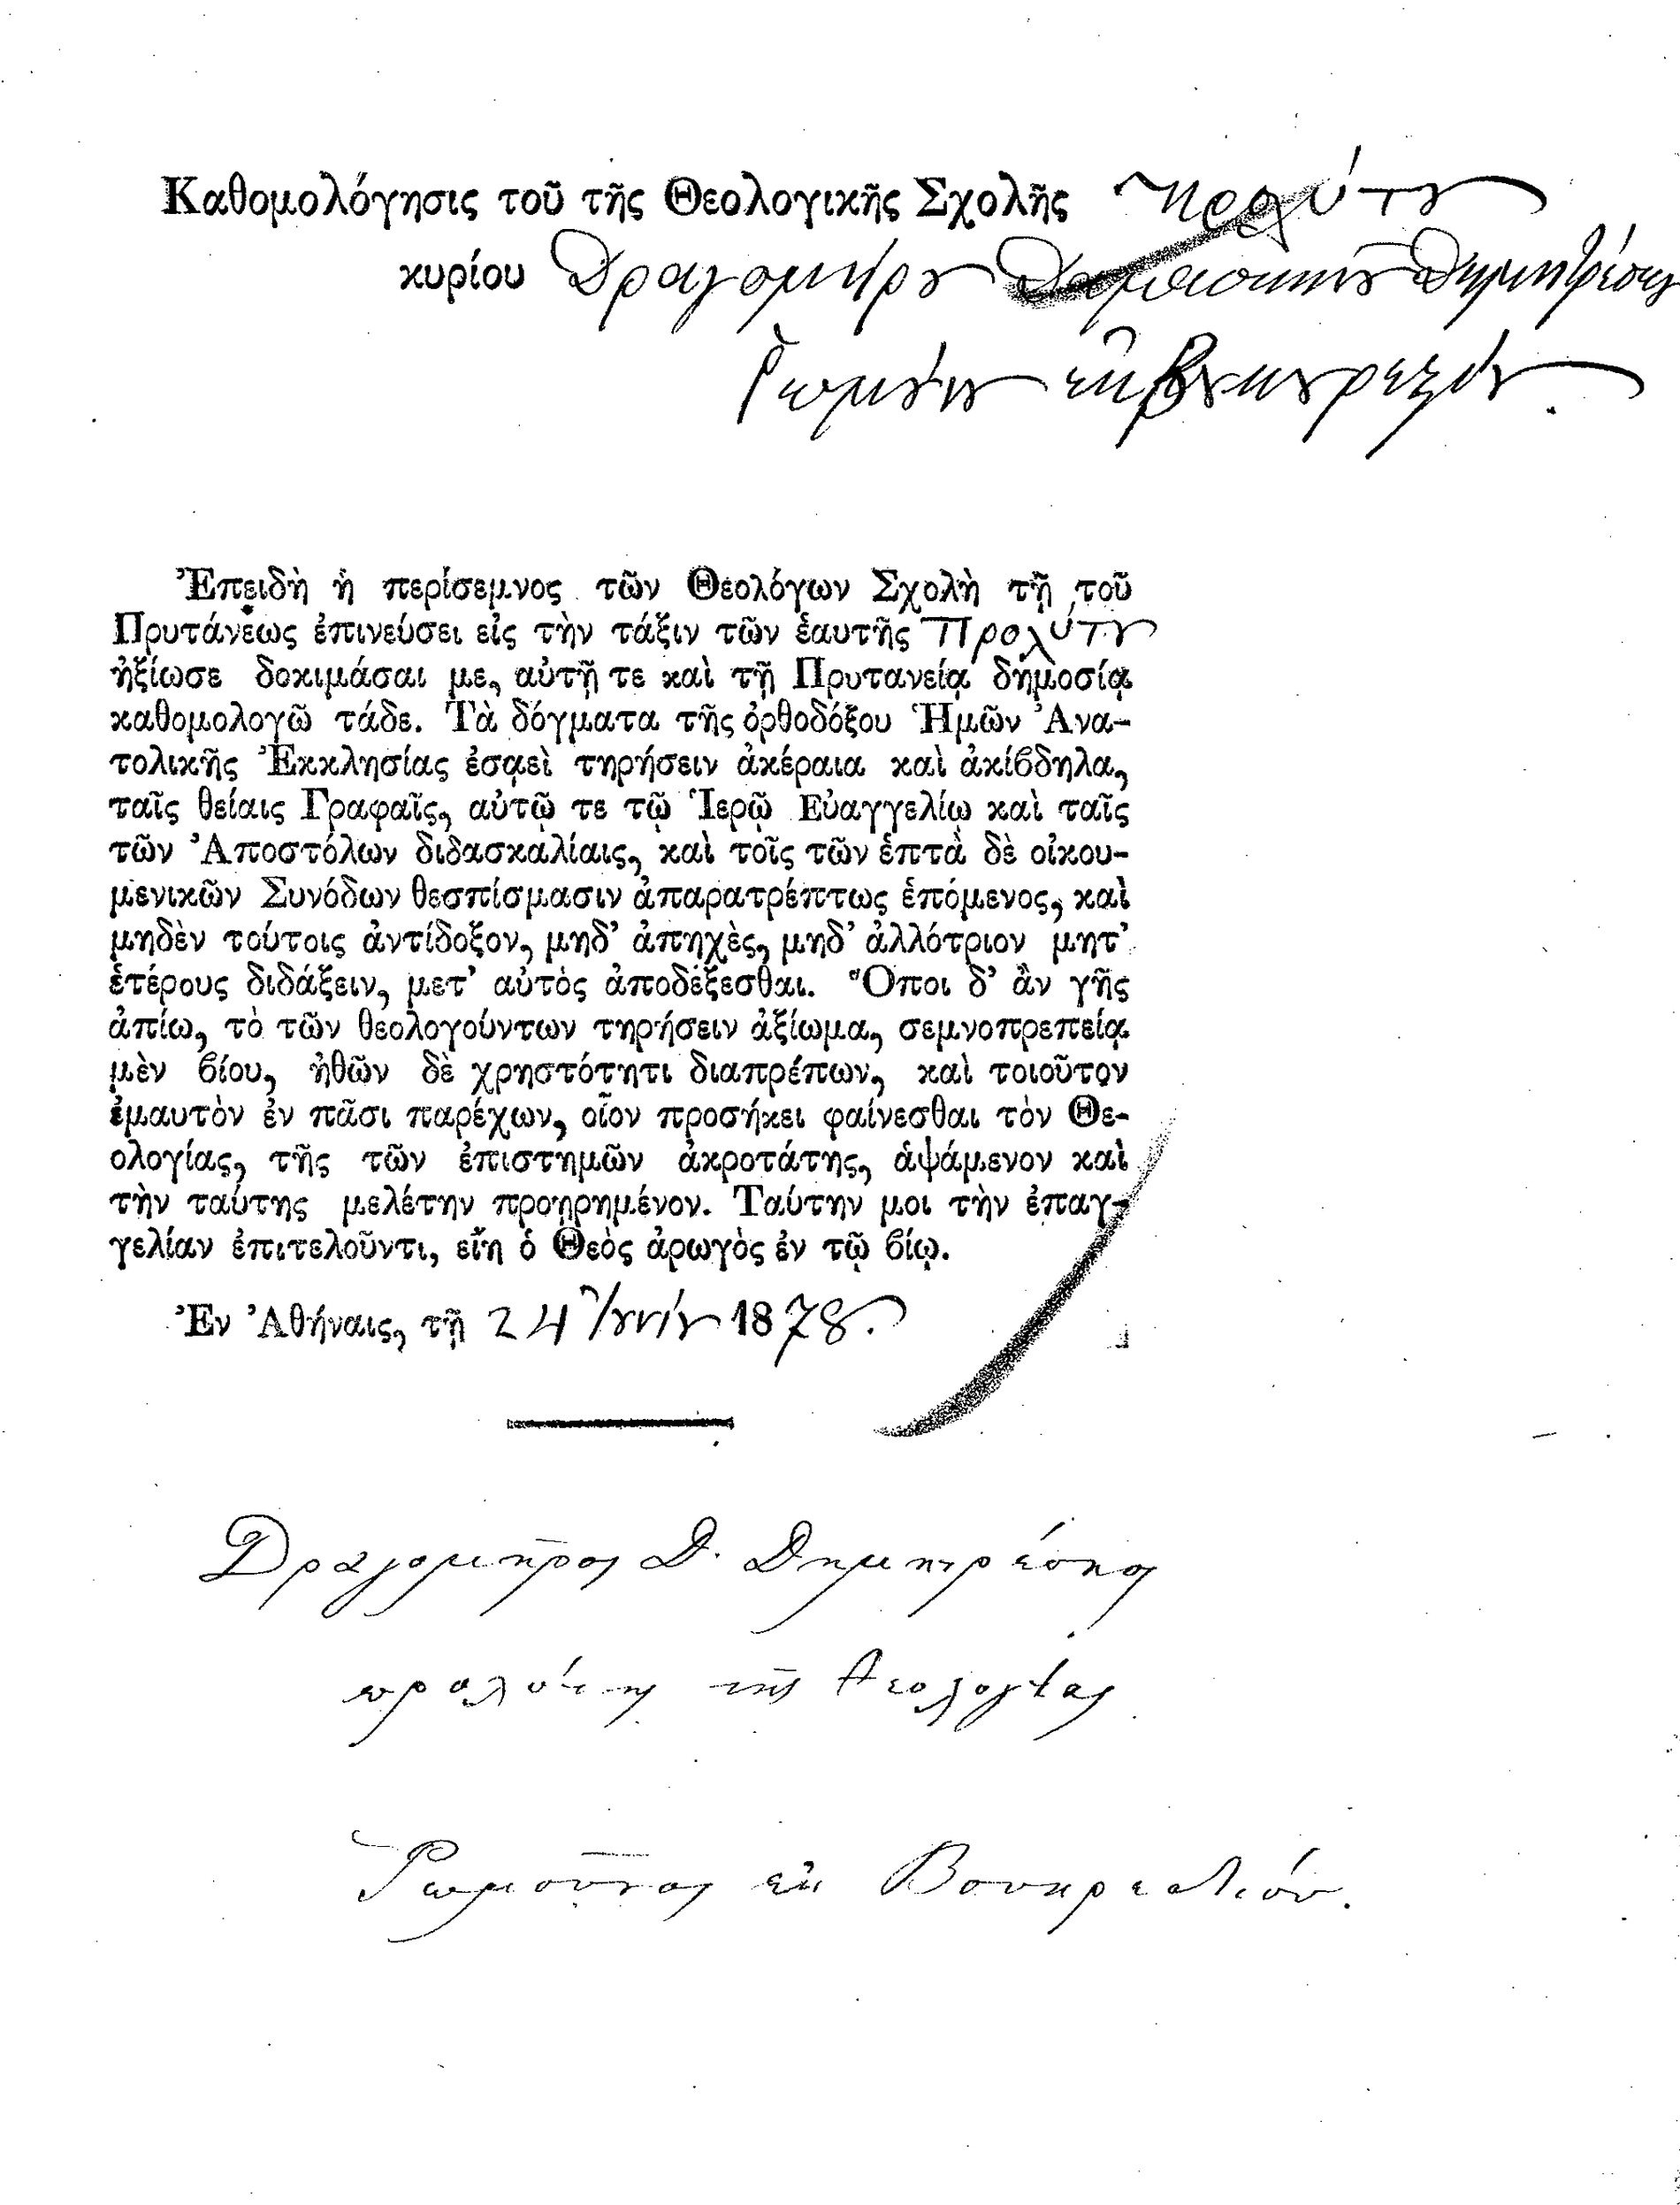 Καθομολόγησις τοῦ τῆς Θεολογικῆς Σχολῆς Προλύτου
κυρίου Δραγομήρου Δημητρέσκου
Ῥωμούνου ἐκ Βουκουρεστίου.
Ἐπειδὴ ἡ περίσεμνος τῶν Θεολόγων Σχολὴ τῇ τοῦ
Πρυτάνεως ἐπινεύσει εἰς τὴν τάξιν τῶν ἑαυτῆς Προλύτου
ἠξίωσε δοκιμάσαι με, αὐτῇ τε καὶ τῇ Πρυτανείᾳ δημοσίᾳ
καθομολογῶ τάδε. Τὰ δόγματα τῆς ὀρθοδόξου Ἡμῶν Ἀνα-
τολικῆς Ἐκκλησίας ἐσαεὶ τηρήσειν ἀκέραια καὶ ἀκίϐδηλα,
ταῖς θείαις Γραφαῖς, αὐτῷ τε τῷ Ἱερῷ Εὐαγγελίῳ καὶ ταῖς
τῶν Ἀποστόλων διδασκαλίαις, καὶ τοῖς τῶν ἑπτὰ δὲ οἰκου-
μενικῶν Συνόδων θεσπίσμασιν ἀπαρατρέπτως ἑπόμενος, καὶ
μηδὲν τούτοις ἀντίδοξον, μηδ’ ἀπηχὲς, μηδ’ ἀλλότριον μητ’
ἑτέρους διδάξειν, μετ’ αὐτὸς ἀποδέξεσθαι. Ὅποι δ’ ἂν γῆς
ἀπίω, τὸ τῶν θεολογούντων τηρήσειν ἀξίωμα, σεμνοπρεπείᾳ
μὲν ϐίου, ἠθῶν δὲ χρηστότητι διαπρέπων, καὶ τοιοῦτον
ἐμαυτὸν ἐν πᾶσι παρέχων, οἷον προσήκει φαίνεσθαι τὸν Θε-
ολογίας, τῆς τῶν ἐπιστημῶν ἀκροτάτης, ἁψάμενον καὶ
τὴν ταύτης μελέτην προῃρημένον. Ταύτην μοι τὴν ἐπαγ-
γελίαν ἐπιτελοῦντι, εἴη ὁ Θεὸς ἀρωγὸς ἐν τῷ ϐίῳ.
Ἐν Ἀθήναις, τῇ 24 Ἰουνίου 1878.
Δραγομῆρος Δ. Δημητρέσκος
προλύτης τῆς θεολογίας
Ῥωμοῦνος ἐκ Βουκρεστίου.